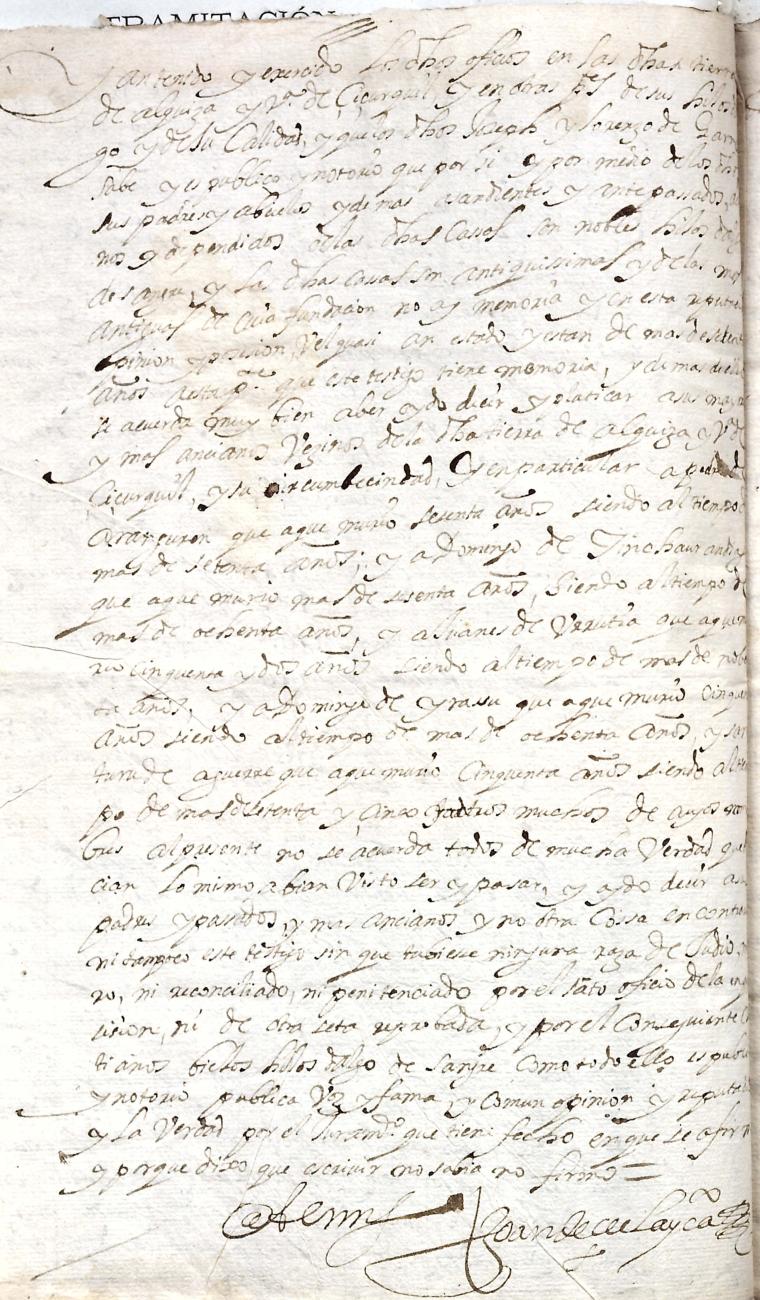 TRAMITACIÓN
y an tenido y exercido los dhos oficios en las dhas tierra
de alquiza y Va de Çiçurquil y en otras ps de sus hilos d
go y de su Calidad, y que los dhos Joseph y lorenzo de
sabe y es publico y notorio que por si y por medio de los dho
sus padres y abuelos y demas asendientes y antepasados,
nos y dependidos de las dhas Cassas son nobles hilos dal
de sangre, y las dhas cassas son antiquissimas y de las mas
antiguas de cuia fundacion no ay memoria y en esta reputa
opinion y possesion, Vel quasi an estado y estan de mas de
años a esta pte que este testigo tiene memoria, y demas de ello
se acuerda muy bien aber oydo decir y platicar a sus mayo
y mas ancianos Vezinos de la dha tierra de alquiza y Va de
Çiçurquil, y su circumbecindad, y en particular a pedro de
que a que murio sesenta años siendo al tiempo d
mas de setenta años; y a Domingo de
que a que murio mas de sesenta años, siendo al tiempo de
mas de ochenta años, y a Juanes de Urrutia que a que mu
rio cinquenta y dos años siendo al tiempo de mas de nobe
ta años, y a Domingo de yrassu que a que murio cinquen
años siendo al tiempo de mas de ochenta años, y
de aguerre que a que murio cinquenta años siendo al tie
po de mas de setenta y cinco y otros muchos de cuyos nom
bres al presente no se acuerda todos de mucha Verdad que
cian lo mismo abian Visto ser y pasar, y oydo decir a sus
padres y pasados, y mas ancianos y no otra cossa en contra
ni tampoco este testigo sin que tubiese ninguna raza de Judio,
ro, ni reconciliado, ni penitenciado por el sato oficio de la in
sision, ni de otra seta reprobada, y por el Consiguiente
tianos biejos hilos dalgo de sangre como todo ello es publi
y notorio publica Voz y fama, y comun opinion y reputa
y la Verdad por el Juramto que tiene fecho en que se afirm
y porque dixo que escrivir no sabia no firmo =
Ante my Joan de